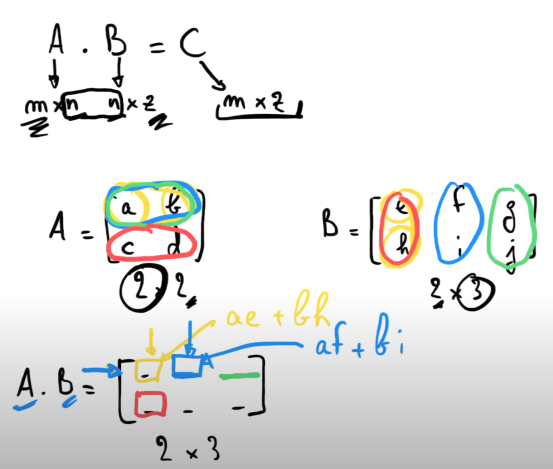 A . B = C
m × n n × z m × z
A = [ a b
c d ]
B = [ e f g
h i j ]
2 × 2 2 × 3
ae + bh
af + bi
A . B = [ - 
- - - ]
2 × 3